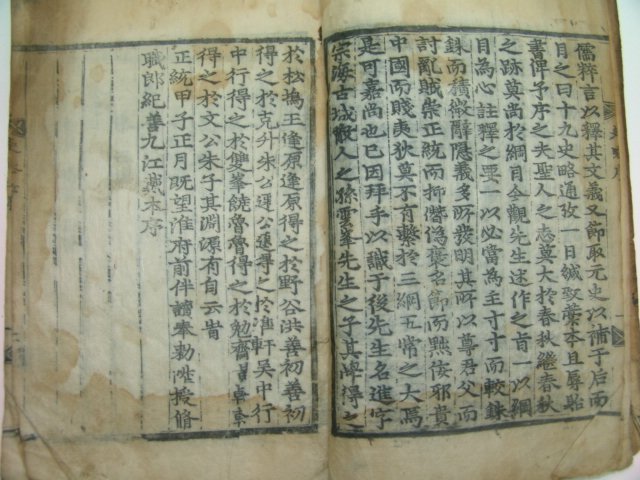 儒粹言以釋其文義又節取元史以補于后而
目之曰十九史略通攷一日緘取藁本且辱貽
書俾予序之夫聖人之志莫大於春秋繼春秋
之跡莫尚於綱目今觀先生述作之旨一以綱
目為心註釋之要一以必當為主寸寸而較銖
銖而積微辭隱義多所發明其所以尊君父而
討亂賊崇正統而抑僭偽褒名節而黜佞邪貴
中國而賤夷狄莫不有繫於三綱五常之大焉
是可嘉尚也已因拜手以識于後先生名進字
宗海古城散人之孫雲峯先生之子其學得之
於松塢王逢原逢原得之於野谷洪善初善初
得之於克升朱公遷公遷得之於準軒吳中行
中行得之於雙峯饒魯魯得之於勉齋黃榦榦
得之於文公朱子其淵源有自云旹
正統甲子正月既望淮府前伴讀奉勅進授脩
職郎紀善九江黃本序